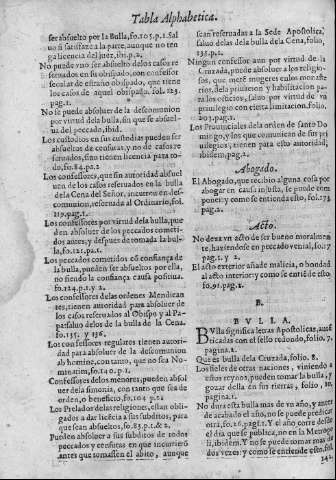 Tabla Alphabetica.
ser absuelto por la Bulla, fo.105.p.1. Sal
uo si satisfaze a la parte, aunque no ten
ga licencia del juez, ibi.p.2.
No puede vno ser absuelto delos casos re
seruados en su obispado, con confessio
calar de estraño obispado, que tiene
los casos de aquel obispado, fol. 125.
pag.1.
No se puede absoluer de la descomunion
por virtud dela bulla, sin que se absuel-
ua del peccado, ibid.
Los custodios en sus custodias pueden ser
absueltos de censuras, y no de casos re
seruados, sino tienen licencia para to-
do, fo.84.pa.1.
Los confessores, que sin autoridad absuel
uen de los casos reseruados en la bulla
de la Cena del Señor, incurren en des-
comunion, reseruada al Ordinario, fol.
119.pag.1.
Los confessores por virtud dela bulla, pue
den absoluer de los peccados cometi
dos antes, y despues de tomada la bu-
lla, fo.121.pa.1.
Los peccados cometidos cō confiança de
la bulla, pueden ser absueltos por ella,
no siendo la confiança causa positiua.
fo.124.p.1.y 2.
Los confessores delas ordenes Mendican
tes, tienen autoridad para absoluer de
los casos reseruados al Obispo y al Pa-
pa saluo delos de la bulla de la Cena.
fo.135. y 136.
Los confessores regulares tienen autoridad
para absoluer de la descomunion
ab homine, con tanto, que no sea No-
minatim, fo.140.p.1.
Confessores delos menores, pueden absol
uer dela simonia, con tanto que sea de
orden, o beneficio, fo.104 p.1.
Los Prelados delas religiones, estan obli-
gados a dar licēcia a sus subditos, para
que sean absueltos, fo.83.p.1.& 2.
Pueden absoluer a sus subditos de todos
peccados y censuras en que incurrierō
antes que tomassen el abito, aunque
sean reseruadas a la Sede Apostolica,
saluo delas dela bulla dela Cena, folio
235. pag.1.
Ningun confessor aun por virtud de la
Cruzada, puede absoluer a los religio-
sos, que mete mugeres enlos moneste-
rios, dela priuacion y habilitacion pa-
ra los officios, saluo por virtud de pri-
uilegio con cierta limitacion. folio.
203. pag.1.
Los Prouinciales dela ordē de santo Do
mingo, y los que comunican de sus pri
uilegios, tienen para esto autoridad,
ibidem. pag.1.
Abogado.
El Abogado, que recibio alguna cosa por
abogar en causa injusta, se puede com
poner, y como se entienda esto, fol.173
pag.2.
Acto.
No dexa vn acto de ser bueno moralmen
te, haziendose en peccado venial, fol.7
pag.1. y 2.
El acto exterior añade malicia, o bondad
al acto interior: y como se enti de esto.
fo.91.pag.2.
B.
BVLLA.
BVlla significa letras Apostolicas, auto-
rizadas con el sello redondo, folio. 7.
pagina.1.
Que es bulla de la Cruzada, folio. 8.
Los fieles de otras naciones, viniendo a
estos reynos, pueden tomar la bulla, y
gozar della en sus tierras, folio, 10.
pagina.1.
No dura esta bulla mas de vn año, y antes
de acabado el año, no se puede predicar
otra, fo.26.pag.1. Y el año corre desde
el dia que se publica, no en la Metropo-
li, ibidem. Y no se puede tomar mas de
dos vezes: y como se entiende esto, fol.
34.